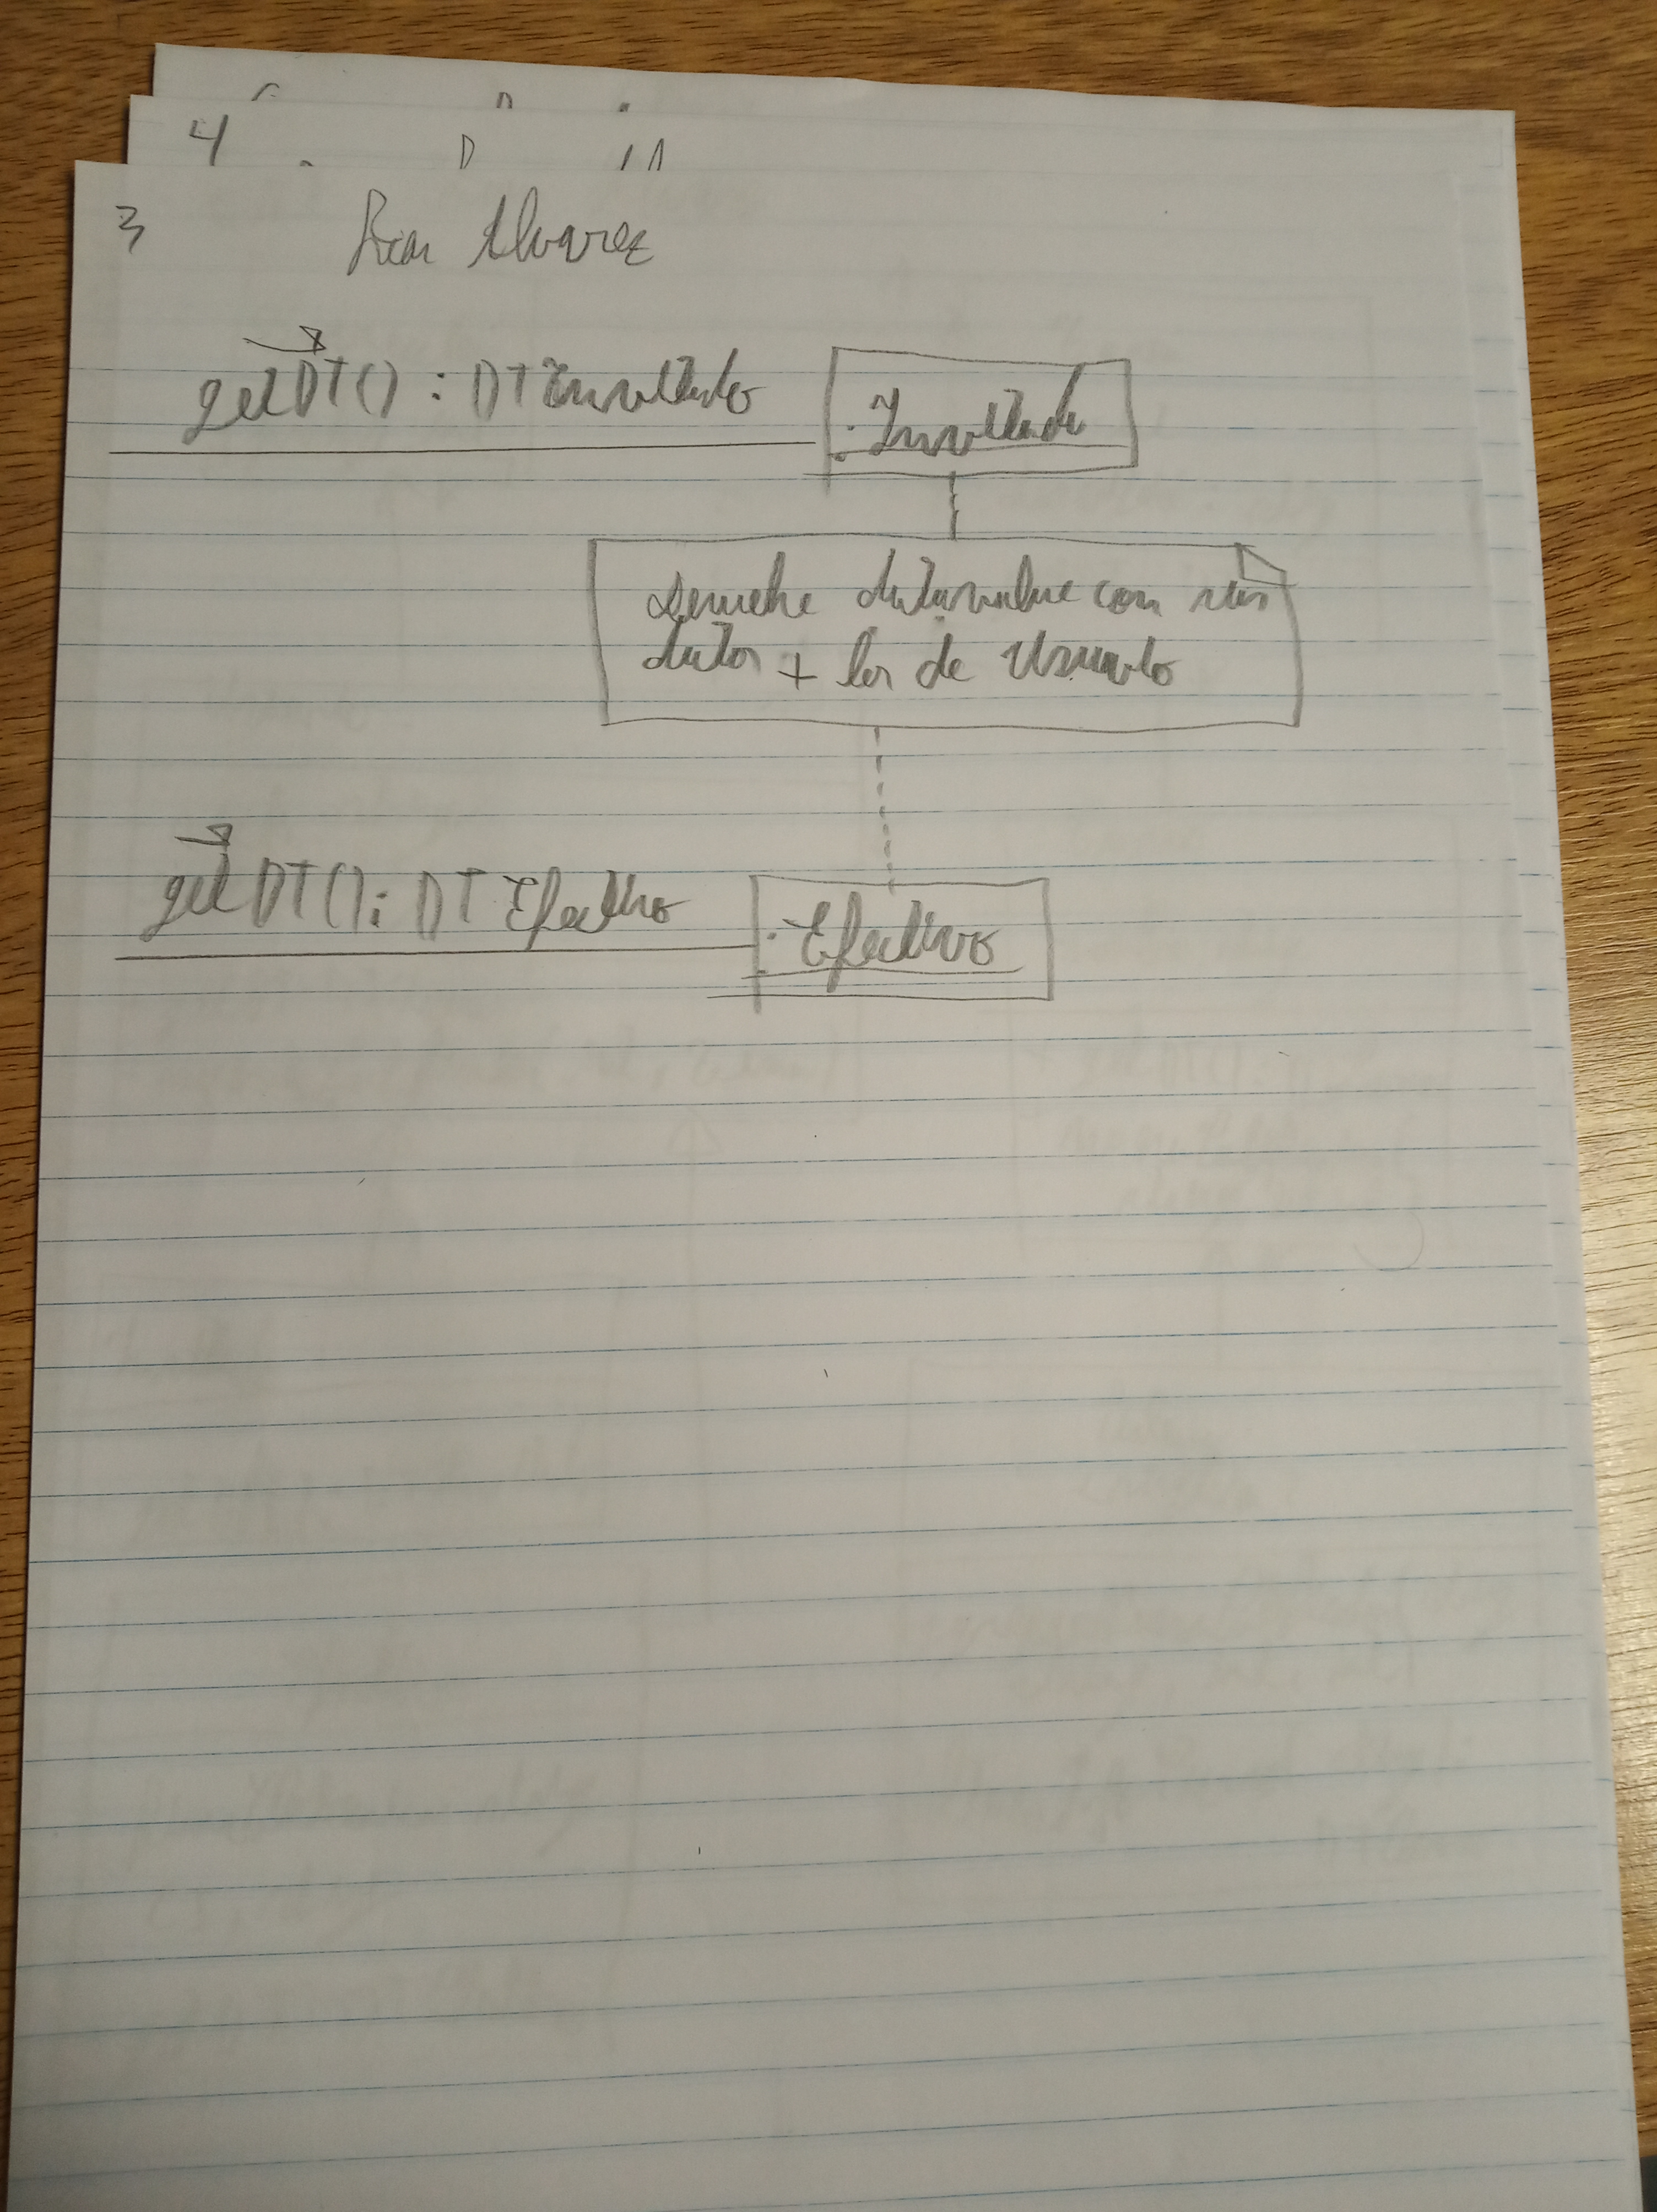 4
3
Alvarez
getDT() : DTInvitado
: Invitado
devuelve datavalue con sus
datos + los de Usuario
getDT(): DTEfectivo
: Efectivo